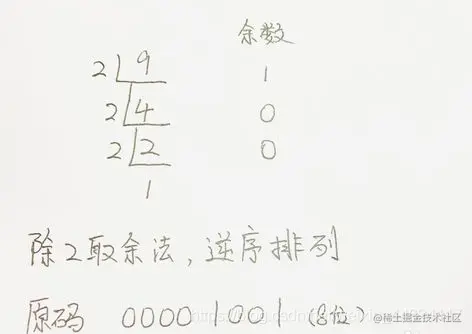 余数
2 9 1
2 4 0
2 2 0
1
除2取余法,逆序排列
原码 00001001 (8位)
@稀土掘金技术社区